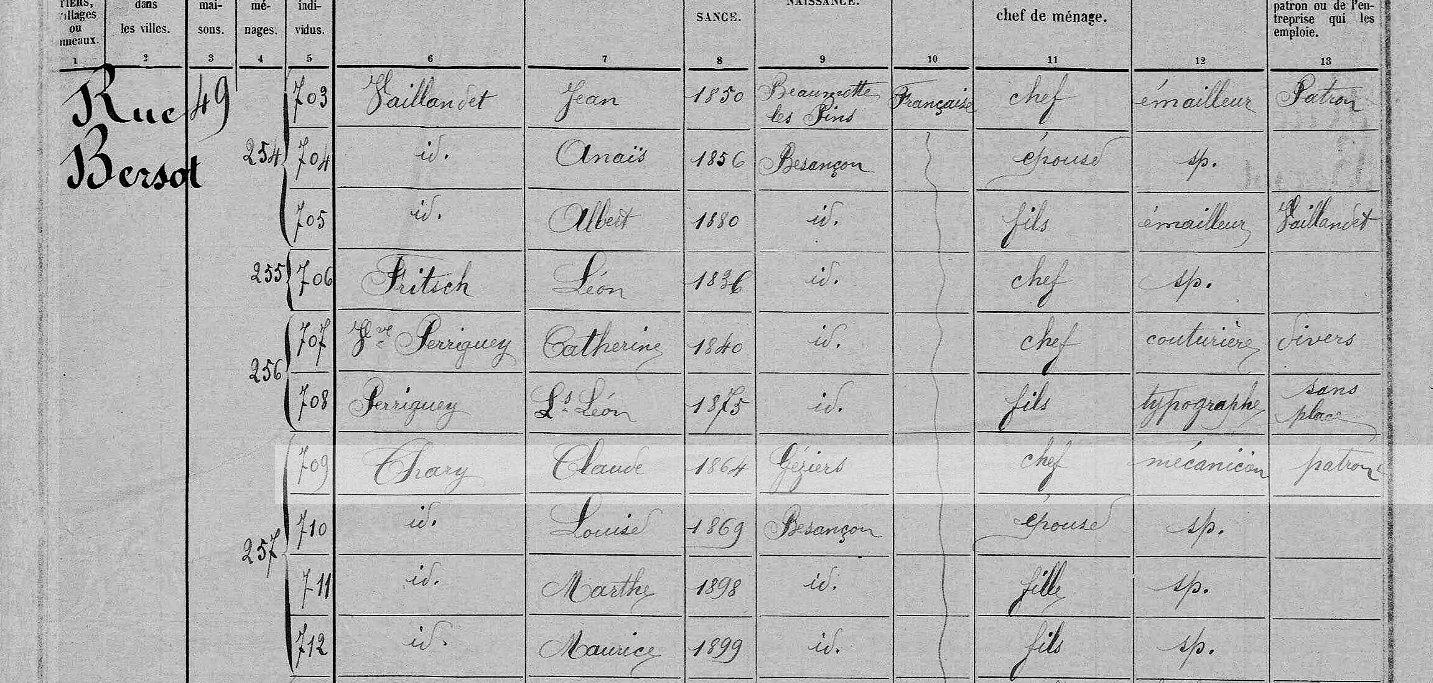 TIERS, dans mai- mé- indi- patron ou de l'en-
villages sons. nages. vidus. SANCE. NAISSANCE. chef de ménage. treprise qui les
ou les villes. emploie.
1 2 3 4 5 6 7 8 9 10 11 12 13
Rue Bersot 49
254
703 Vaillandet Jean 1850 Beaumotte les Pins Française chef émailleur Patron
704 id. Anaïs 1856 Besançon épouse sp.
705 id. Albert 1880 id. fils émailleur Vaillandet
255
706 Fritsch Léon 1836 id. chef sp.
256
707 Vve Perriguey Catherine 1840 id. chef couturière divers
708 Perriguey Ls Léon 1875 id. fils typographe sans place
257
709 Thary Claude 1864 Géziers chef mécanicien patron
710 id. Louise 1869 Besançon épouse sp.
711 id. Marthe 1898 id. fille sp.
712 id. Maurice 1899 id. fils sp.